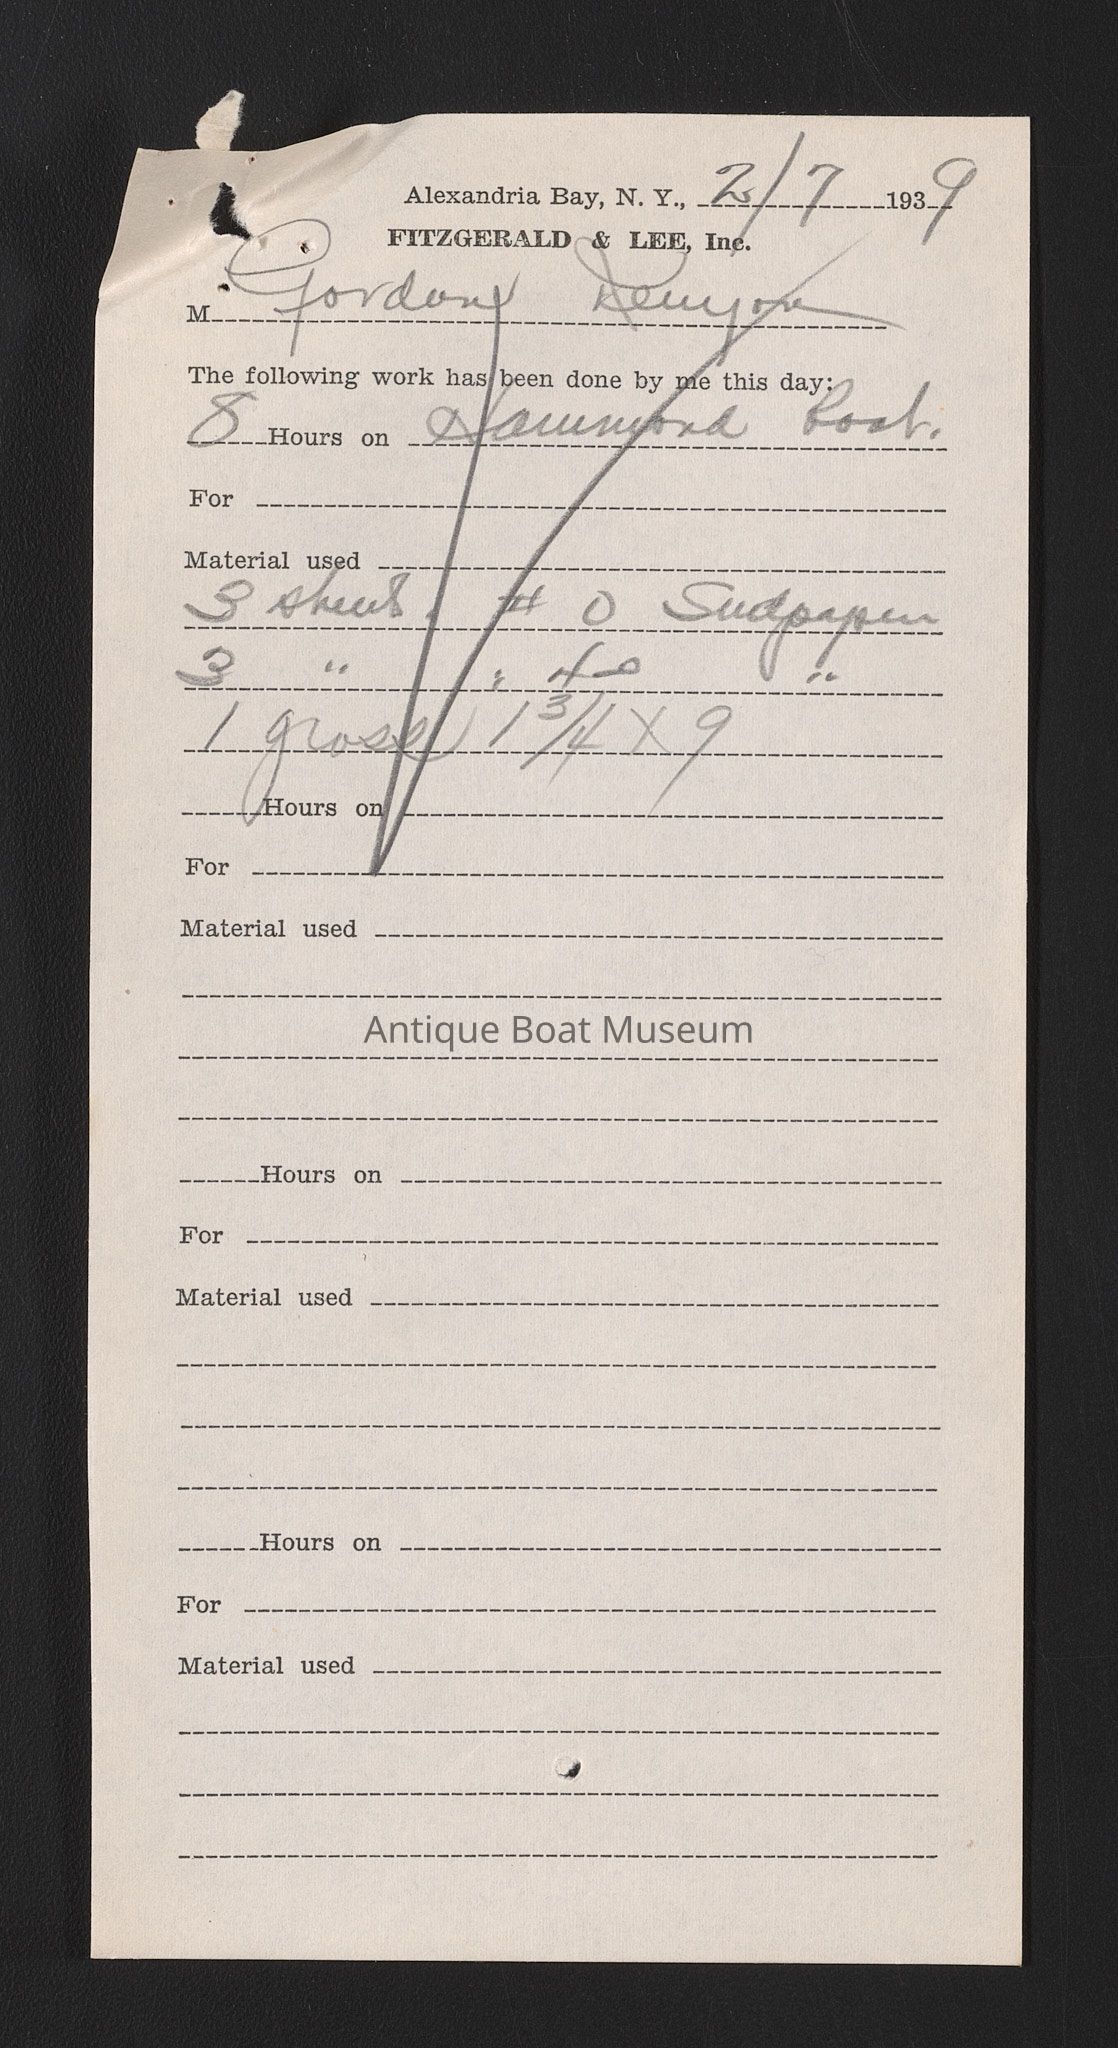 Alexandria Bay, N. Y., 2/7 1939
FITZGERALD & LEE, Inc.
M Gordon Kenyon
The following work has been done by me this day:
8 Hours on Hammond Boat.
For
Material used
3 sheets. # 0 Sudpaper
3 " " 4-0 "
1 gross 1 3/4 X 9
Hours on
For
Material used
Antique Boat Museum
Hours on
For
Material used
Hours on
For
Material used